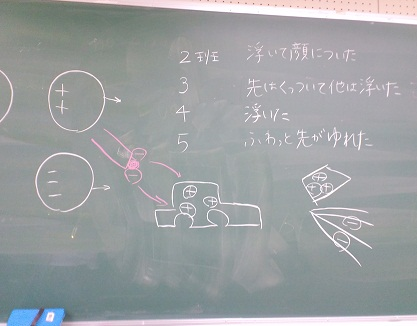 2班 浮いて顔についた
3 先はくっついて他は浮いた
4 浮いた
5 ふわっと先がゆれた
+
+
−
−
−
⊖
⊖
⊕
⊕
⊕
⊕
⊕
⊕
⊖
⊖